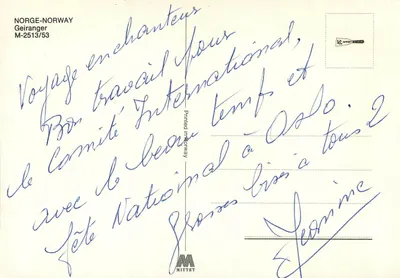 NORGE-NORWAY
Geiranger
M-2513/53
Voyage enchanteur
Bon travail pour
le Comité International,
avec le beau temps et
fête National à Oslo.
Grosses bises à tous 2
Jeanine
Printed in Norway
MITTET